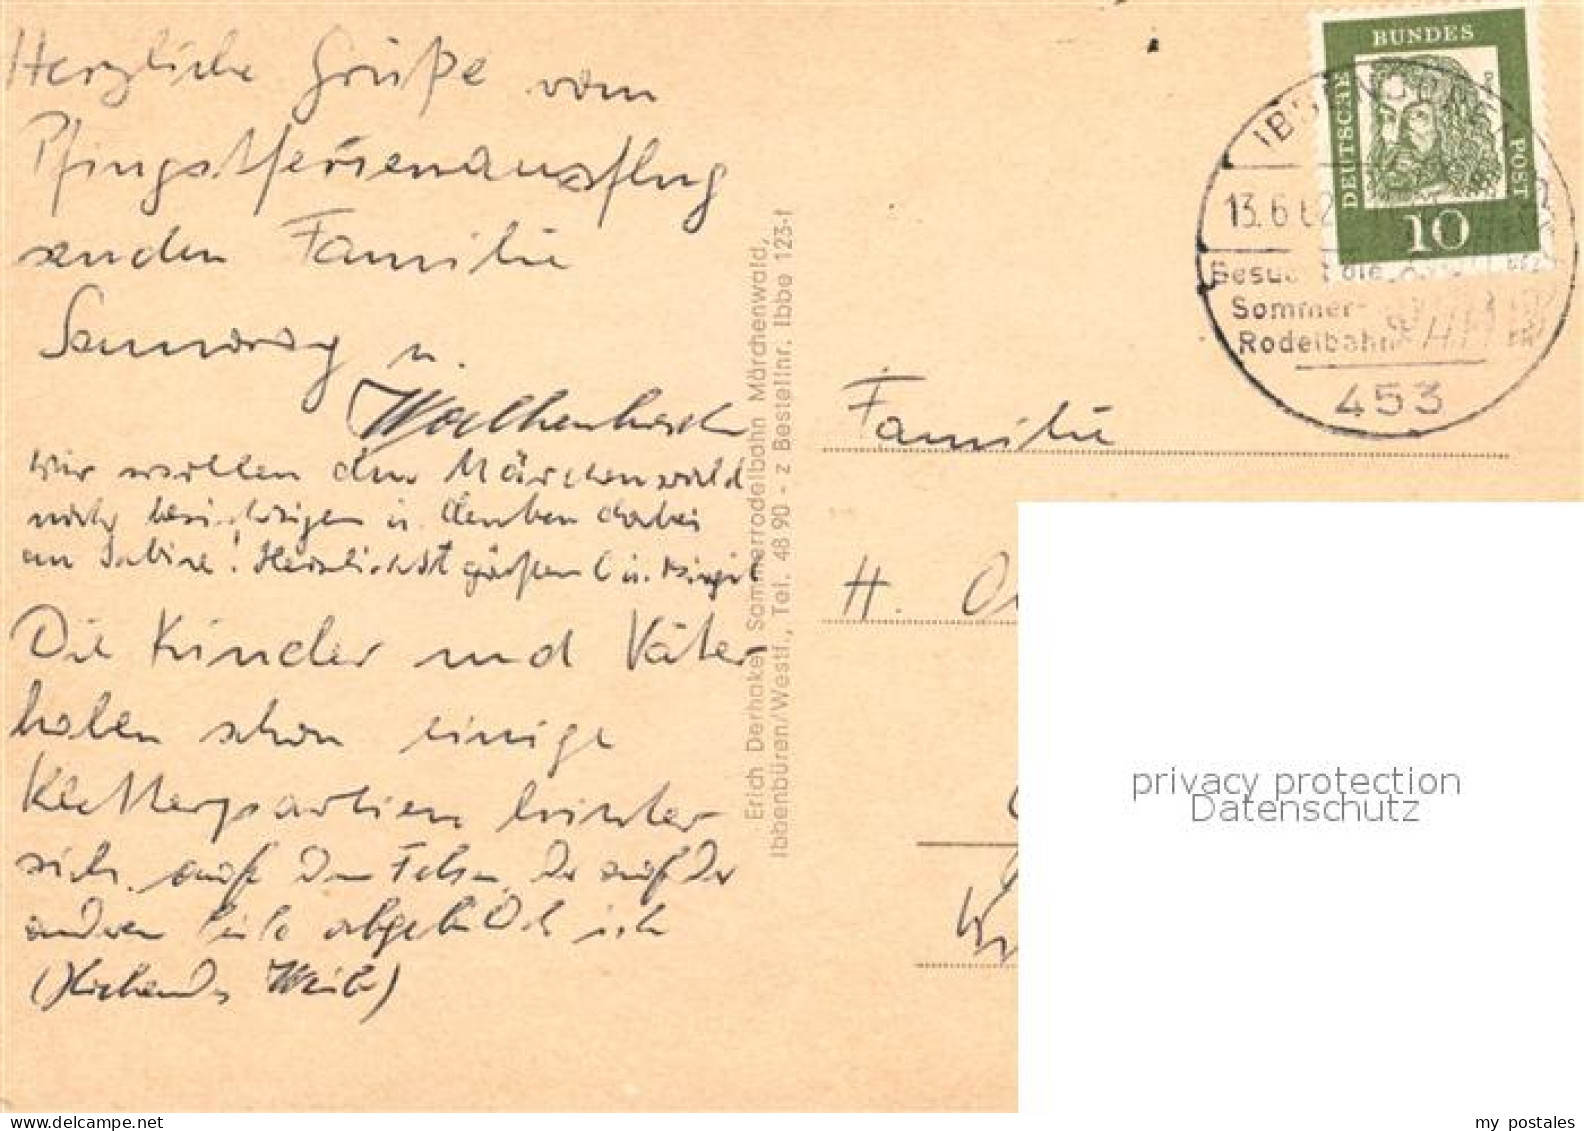 Herzliche Grüße vom
Pfingstferienausflug
senden Familie
u.
Wir wollen den Märchenwald
besichtigen u. denken dabei
an Sabine! Herzlichst grüßen
Die Kinder und Väter
haben schon einige
Kletterpartien hinter
sich, auf den Felsen, der auf der
anderen Seite abgebildet ist
Erich Derhake, Sommerrodelbahn Märchenwald,
Ibbenbüren/Westf., Tel. 48 90 - z Bestellnr. Ibbe 123-f
DEUTSCHE BUNDES POST
10
13.6.62
Besucht die
Sommer-
Rodelbahn
453
Familie
H.
privacy protection
Datenschutz
my postales
www.delcampe.net